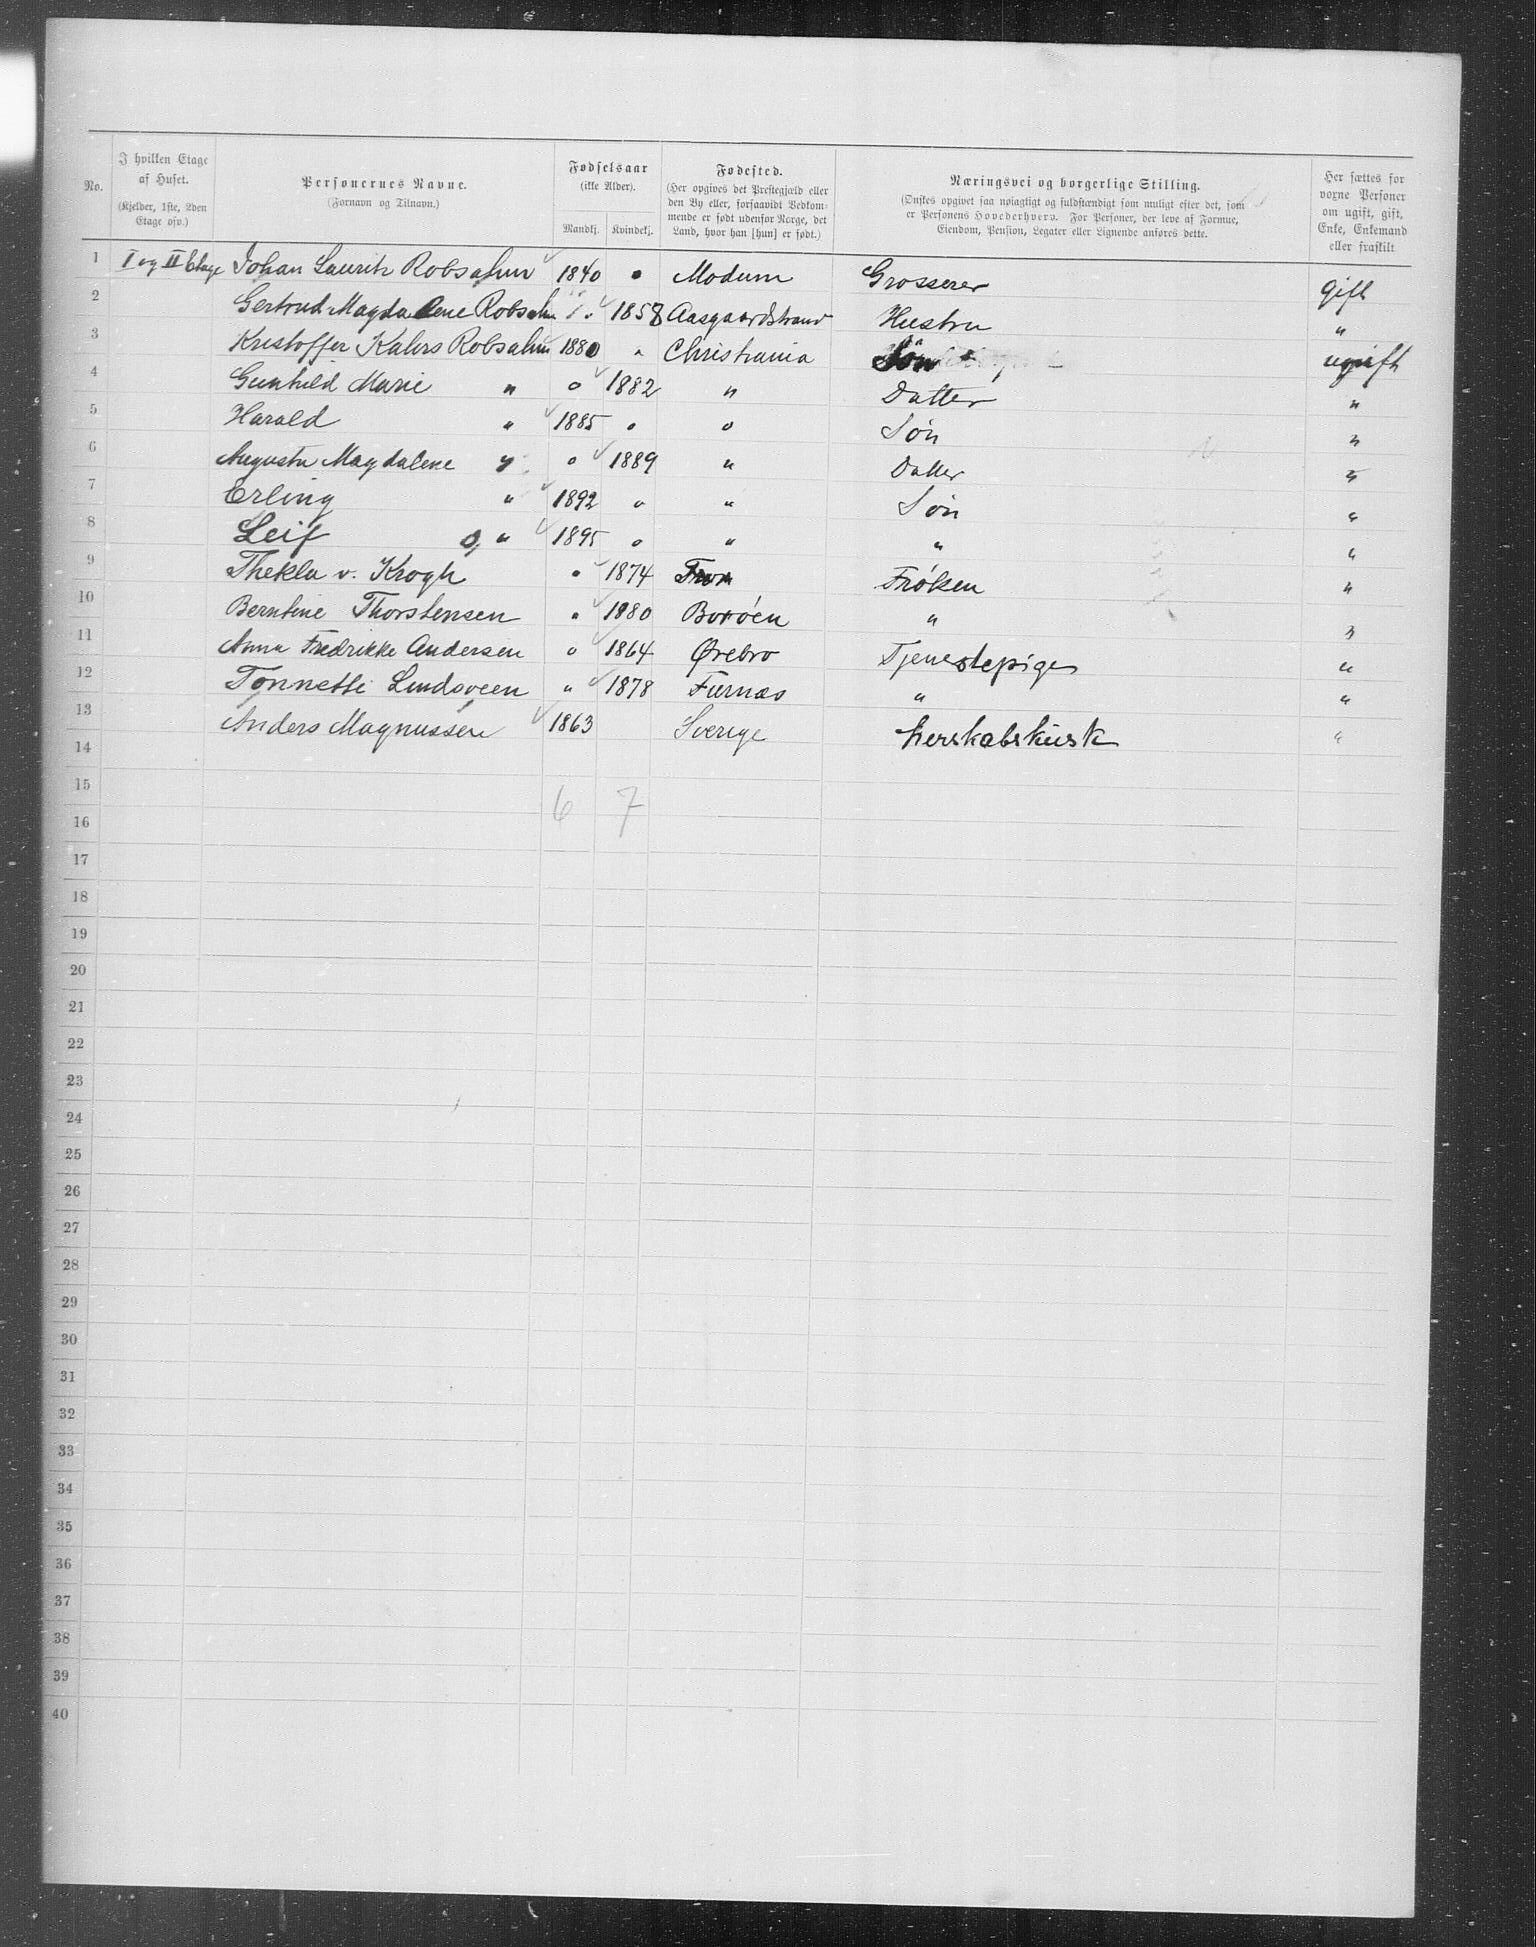 No. | I hvilken Etage af Huset. (Kjelder, 1ste, 2den Etage osv.) | Personernes Navne. (Fornavn og Tilnavn.) | Fødselsaar (ikke Alder). Mandkj. | Kvindekj. | Fødested. (Her opgives det Prestegjæld eller den By eller, forsaavidt Vedkommende er født udenfor Norge, det Land, hvor han [hun] er født.) | Næringsvei og borgerlige Stilling. (Ønskes opgivet saa nøiagtigt og fuldstændigt som muligt efter det, som er Personens Hovederhverv. For Personer, der leve af Formue, Eiendom, Pension, Legater eller Lignende anføres dette. | Her sættes for voxne Personer om ugift, gift, Enke, Enkemand eller fraskilt
1 | I og II Etage | Johan Lauritz Robsahm | 1840 | " | Modum | Grosserer | gift
2 | Gertrud Magdalene Robsahm | " | 1858 | Aasgaardstrand | Hustru | "
3 | Kristoffer Kahrs Robsahm | 1880 | " | Christiania | Søn | ugift
4 | Gunhild Marie " | " | 1882 | " | Datter | "
5 | Harald " | 1885 | " | " | Søn | "
6 | Augusta Magdalene " | " | 1889 | " | Datter | "
7 | Erling " | 1892 | " | " | Søn | "
8 | Leif " | 1895 | " | " | " | "
9 | Thekla v. Krogh | " | 1874 | Fron | Frøken | "
10 | Berntine Thorstensen | " | 1880 | Borøen | " | "
11 | Anna Fredrikke Andersen | " | 1864 | Ørebro | Tjenestepige | "
12 | Tonnette Lindsveen | " | 1878 | Furnæs | " | "
13 | Anders Magnussen | 1863 | Sverige | herskabskusk | "
14
15
6 7
16
17
18
19
20
21
22
23
24
25
26
27
28
29
30
31
32
33
34
35
36
37
38
39
40